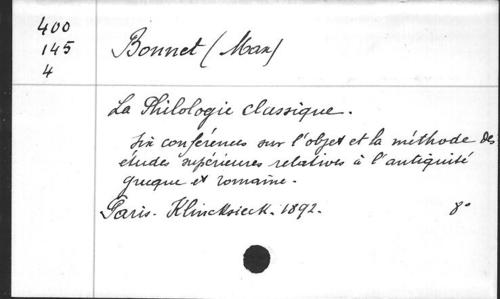 400
145
4
Bonnet (Max)
La Philologie classique.
six conférences sur l'objet et la méthode des
études supérieures relatives à l'antiquité
grecque et romaine.
Paris. Klincksieck. 1892. 8°